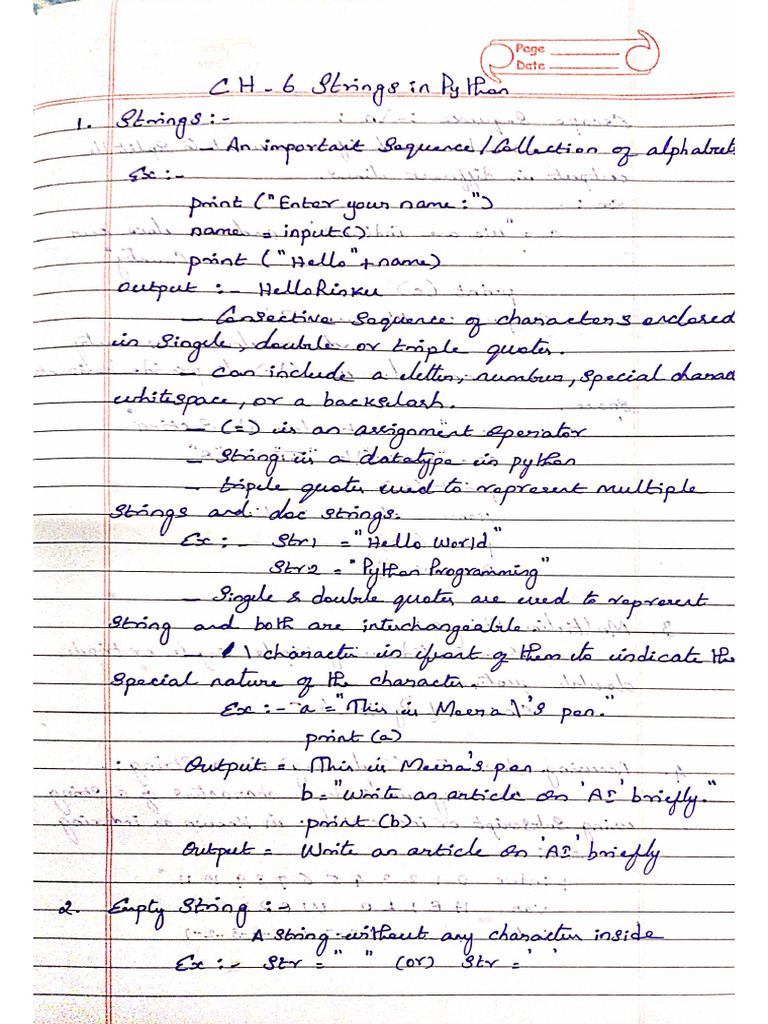 Page
Date
CH-6 Strings in Python
1. Strings:-
- An important Sequence/Collection of alphabets
Ex:-
print ("Enter your name:")
name = input()
print ("Hello"+name)
Output :- HelloRinku
- Consective Sequence of characters enclosed
in Single, double or triple quotes.
- Can include a letter, number, special charac
whitespace, or a backslash.
- (=) is an assignment operator
- String is a datatype in python
- triple quotes used to represent multiple
strings and doc strings.
Ex:- Str1 = "Hello World"
Str2 = "Python Programming"
- Single & double quotes are used to represent
String and both are interchangeable.
- \ character in front of them to indicate the
special nature of the character.
Ex:- a = "This is Meera\'s pen."
print(a)
Output = This is Meera's pen
b = "Write an article on 'AI' briefly."
print(b)
Output = Write an article on 'AI' briefly
2. Empty String:-
A string without any character inside
Ex:- Str = " " (or) Str = ' '